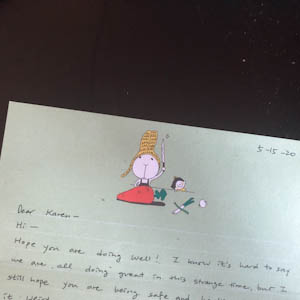 5-15-20
Dear Karen-
Hi-
Hope you are doing well! I know it's hard to say
we are all doing great in this strange time, but I
still hope you are being safe and